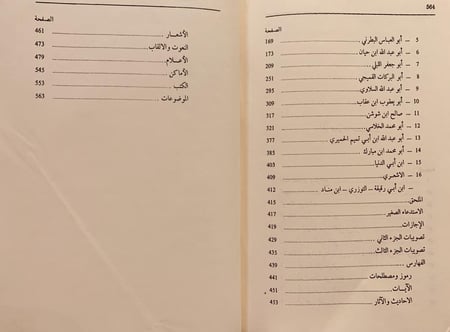 564
الصفحة
5 – أبو العباس البطرني ... 169
6 – أبو عبد الله ابن حيان ... 173
7 – أبو جعفر اللبلي ... 209
8 – أبو البركات القميجي ... 251
9 – أبو عبد الله السلاوي ... 295
10 – أبو يعقوب ابن عقاب ... 309
11 – صالح ابن شوشن ... 317
12 – أبو محمد الخلاسي ... 321
13 – أبو عبد الله ابن أبي تميم الحميري ... 377
14 – أبو محمد ابن مبارك ... 385
15 – ابن أبي الدنيا ... 403
16 – الاشعري ... 409
– ابن أبي رقيقة – التوزري – ابن مناد ... 412
الملحق ... 415
الاستدعاء الصغير ... 417
الإجازات ...
تصويبات الجزء الثاني ... 429
تصويبات الجزء الثالث ... 435
الفهارس ... 439
رموز ومصطلحات ... 441
الآيات ... 451
الاحاديث والآثار ... 453
الصفحة
الأشعار ... 461
النعوت والالقاب ... 473
الأعلام ... 479
الأماكن ... 545
الكتب ... 553
الموضوعات ... 563